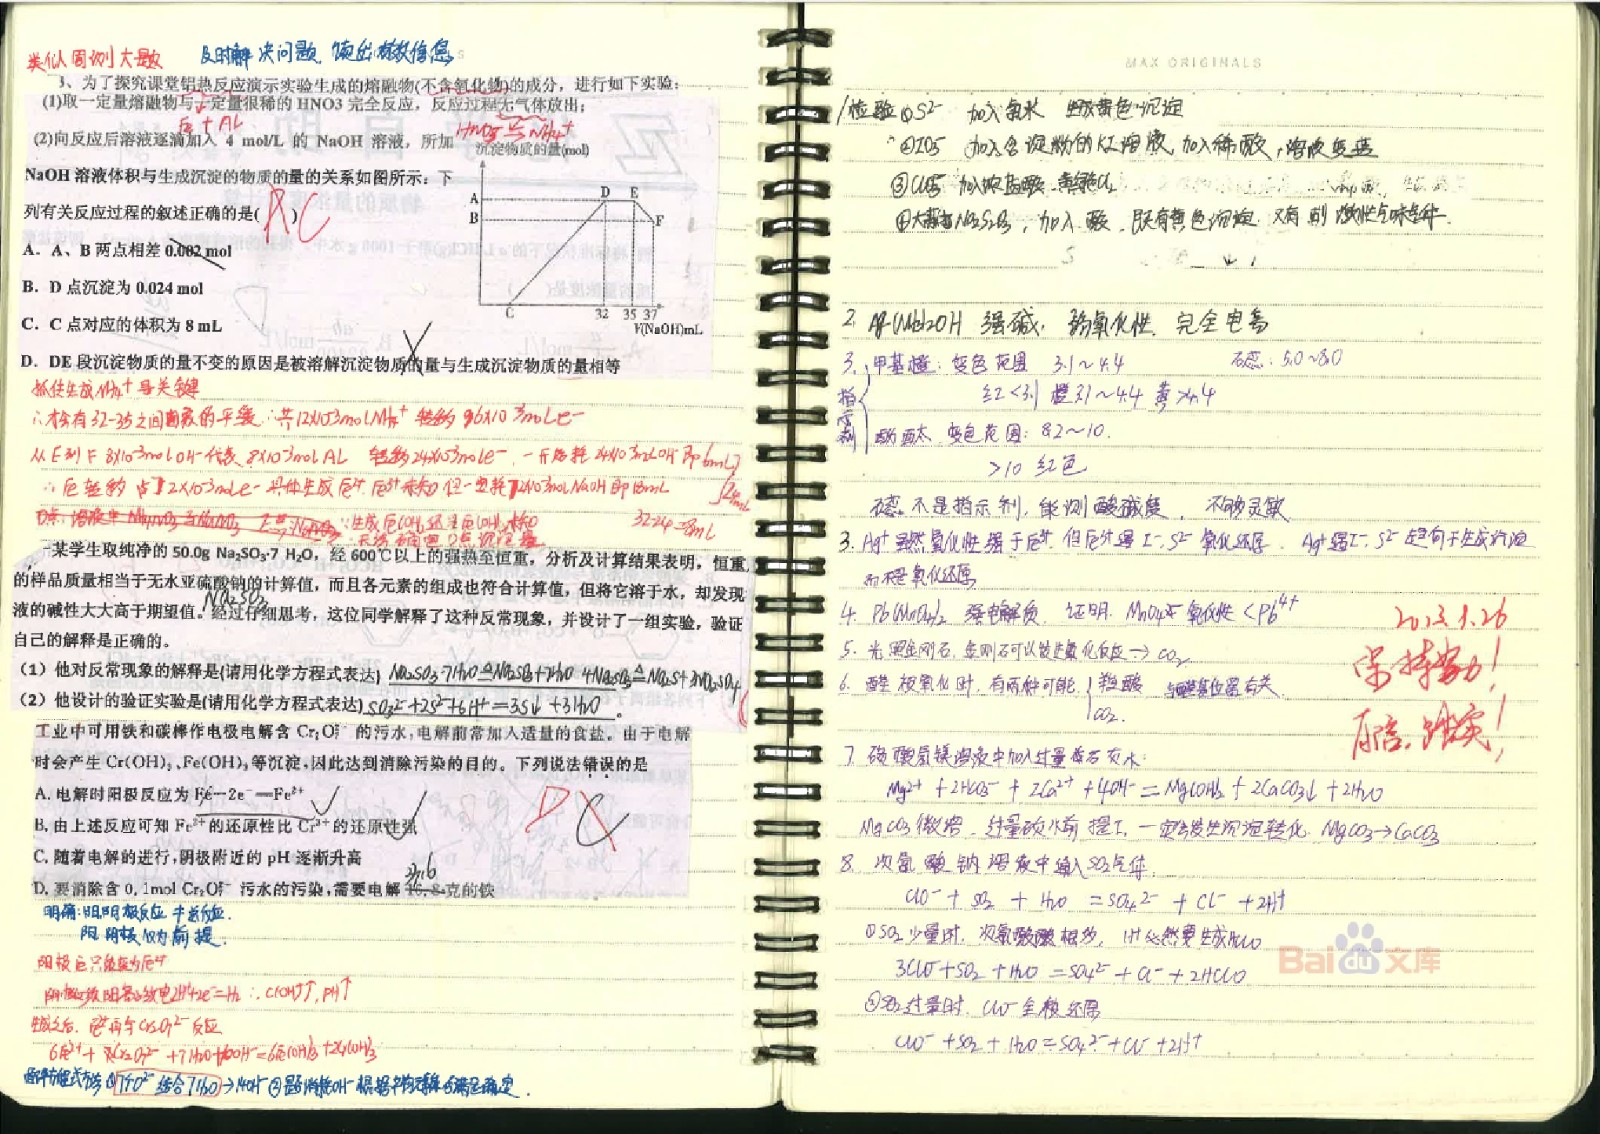 类似周测大题 及时解决问题,读出有效信息
3、为了探究课堂铝热反应演示实验生成的熔融物(不含氧化物)的成分，进行如下实验：
(1)取一定量熔融物与一定量很稀的HNO3完全反应，反应过程无气体放出；
Fe + AL
HNO3 → NH4+
(2)向反应后溶液逐滴加入 4 mol/L 的 NaOH 溶液，所加
沉淀物质的量(mol)
NaOH 溶液体积与生成沉淀的物质的量的关系如图所示：下
列有关反应过程的叙述正确的是( )
A C
A
B
D E
F
C 32 35 37
V(NaOH)mL
A．A、B 两点相差 0.002 mol
B．D 点沉淀为 0.024 mol
C．C 点对应的体积为 8 mL
D．DE 段沉淀物质的量不变的原因是被溶解沉淀物质的量与生成沉淀物质的量相等
抓住生成NH4+ 是关键
∴才会有32-35之间的平缓 ∴共12×10-3mol NH4+ 转移 96×10-3mol e-
从E到F 8×10-3mol OH- 代表 8×10-3mol AL 转移24×10-3mol e-
32-24=8mL
一某学生取纯净的 50.0g Na₂SO₃·7 H₂O，经 600℃以上的强热至恒重，分析及计算结果表明，恒重
的样品质量相当于无水亚硫酸钠的计算值，而且各元素的组成也符合计算值，但将它溶于水，却发现
液的碱性大大高于期望值。经过仔细思考，这位同学解释了这种反常现象，并设计了一组实验，验证
Na2SO3
自己的解释是正确的。
（1）他对反常现象的解释是(请用化学方程式表达) Na2SO3·7H2O ≜ Na2SO3+7H2O 4Na2SO3 ≜ Na2S+3Na2SO4
（2）他设计的验证实验是(请用化学方程式表达) SO3²⁻+2S²⁻+6H⁺=3S↓+3H2O 。
工业中可用铁和碳棒作电极电解含 Cr₂O₇²⁻ 的污水,电解前常加入适量的食盐。由于电解
时会产生 Cr(OH)₃、Fe(OH)₃等沉淀,因此达到消除污染的目的。下列说法错误的是
A. 电解时阳极反应为 Fe－2e⁻═Fe²⁺
D
B. 由上述反应可知 Fe²⁺的还原性比 Cr³⁺的还原性强
C. 随着电解的进行,阴极附近的 pH 逐渐升高
D. 要消除含 0.1mol Cr₂O₇²⁻ 污水的污染,需要电解 克的铁
明确:阴阳极反应
阳,阴极 为前提.
阳极Fe只能变为Fe²⁺
∴c(OH-)↑, PH↑
生成之后, Fe²⁺再与Cr2O7²⁻反应
MAX ORIGINALS
1检验①S²⁻ 加入氯水 生成黄色沉淀
②IO3⁻ 加入含淀粉的KI溶液,加入稀酸,溶液变蓝
③ClO3⁻ 加浓盐酸 黄绿Cl2
④大苏打Na2S2O3,加入酸,既有黄色沉淀 又有刺激性气味气体.
强碱, 弱氧化性, 完全电离
3. 甲基橙: 变色范围 3.1~4.4 石蕊: 5.0~8.0
指示剂
红<3.1 橙3.1~4.4 黄>4.4
酚酞 变色范围: 8.2~10.
>10 红色
石蕊不是指示剂, 能测酸碱度, 不够灵敏
3. Ag⁺虽然氧化性强于Fe³⁺, 但Fe³⁺遇I⁻、S²⁻ 氧化还原, Ag⁺遇I⁻、S²⁻ 趋向于生成沉淀
而不是氧化还原
4. Pb(MnO4)2 强电解质 证明 MnO4⁻氧化性<Pb⁴⁺
2013.1.26
5. 金刚石可以发生氧化反应→CO2
坚持努力!
6. 醛 被氧化时, 有两种可能 羧酸
CO2.
踏实!
7. 碳酸氢镁溶液中加入过量石灰水:
Mg²⁺+2HCO3⁻+2Ca²⁺+4OH⁻=Mg(OH)2+2CaCO3↓+2H2O
MgCO3微溶, 过量石灰水前提下, 一定会发生沉淀转化 MgCO3→CaCO3
8. 次氯酸钠溶液中通入SO2气体:
ClO⁻+SO2+H2O=SO4²⁻+Cl⁻+2H⁺
①SO2少量时, 次氯酸根多, H⁺必然要生成HClO
3ClO⁻+SO2+H2O=SO4²⁻+Cl⁻+2HClO
②SO2过量时, ClO⁻全被还原
ClO⁻+SO2+H2O=SO4²⁻+Cl⁻+2H⁺
Bai du 文库